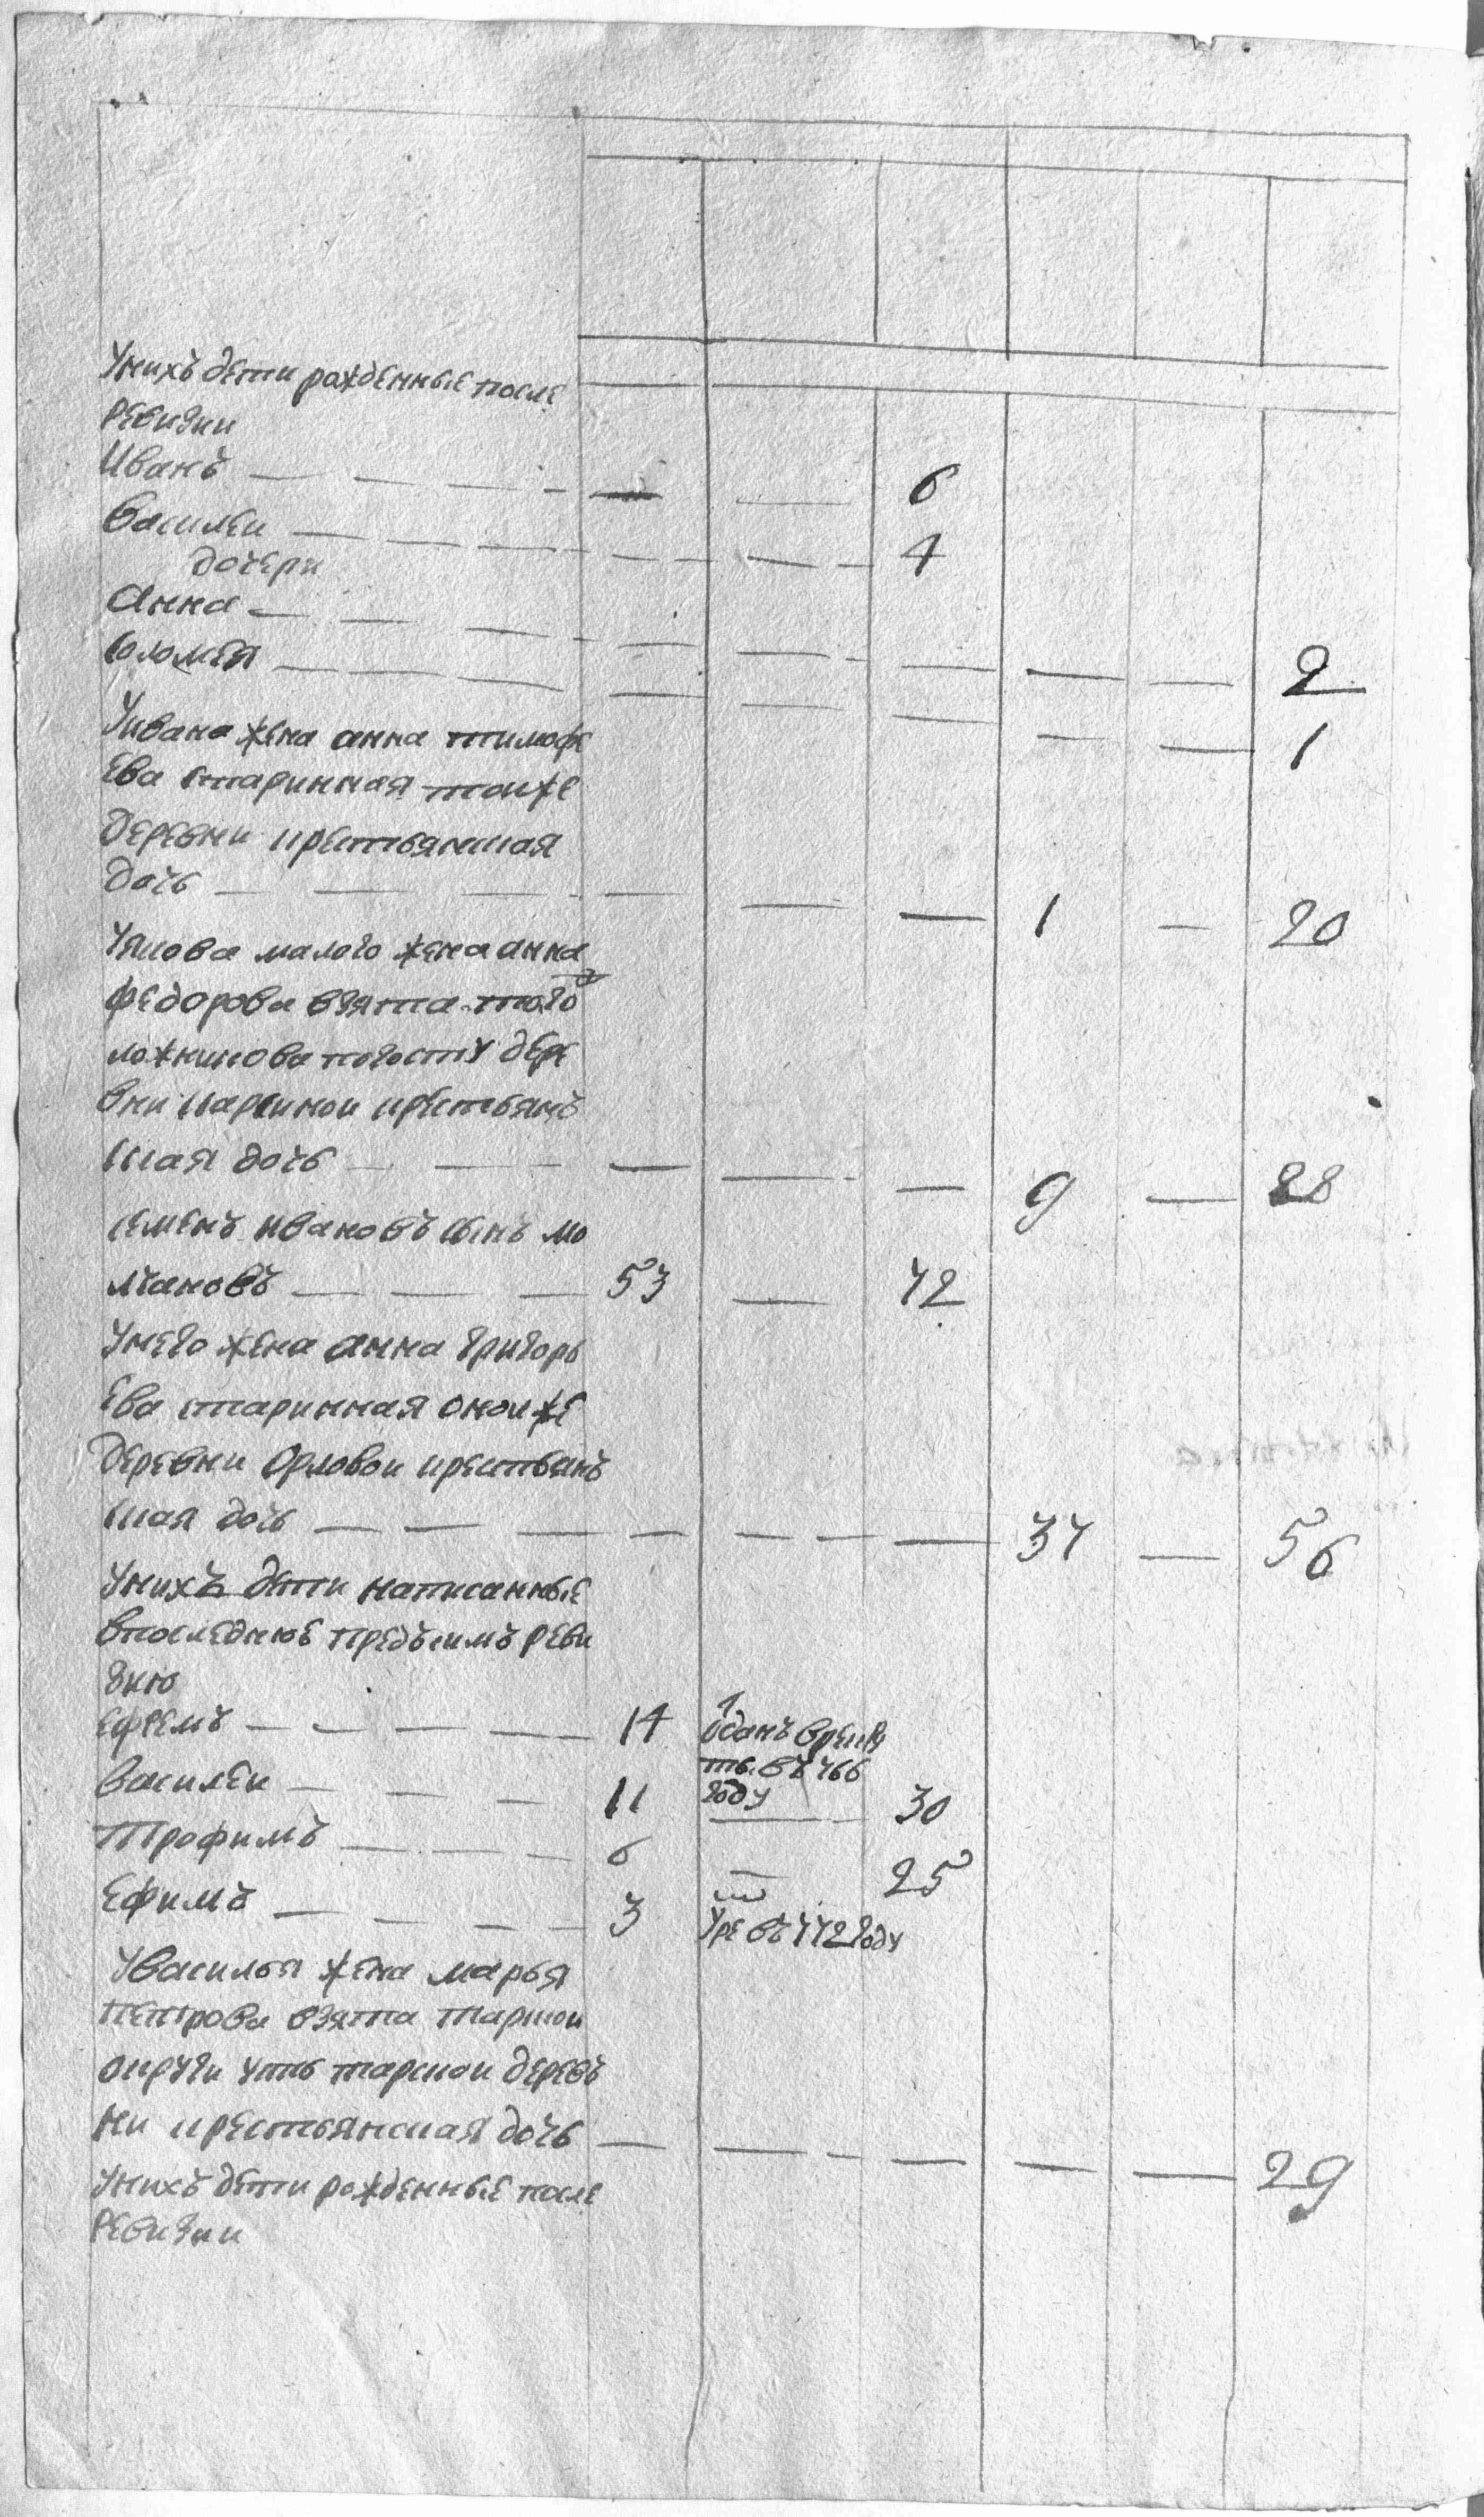 Унихъ дети рожденные после
ревизии
Иванъ — — — — — — 6
Василеи — — — — — — — 4
дочери
Анна — — — — — — — — — 2
Соломея — — — — — — — — 1
Уивана жена анна тимофе
ева старинная тоиже
деревни крестьянская
дочь — — — — — — — 1 — 20
Уякова малого жена анна
федорова взята того ж
ложникова погосту дере
вни карсикои крестьянъ
ская дочь — — — — — — 9 — 28
семенъ ивановъ сынъ мо
лчановъ — — — 53 — 72
Унего жена анна григорь
ева старинная оноиже
деревни Орловои крестьянъ
ская дочь — — — — — — — 37 — 56
Унихъ дети написанные
впоследнюе предъсимъ реви
зию
ефремъ — — — — 14 оданъ врекру
ты въ 766
году
Василеи — — — 11 — 30
Трофимъ — — — — 6 — 25
Ефимъ — — — — 3 Уре въ 772 году
Увасилья жена марья
петрова взята тарскои
округи усть тарскои деревъ
ни крестьянская дочь — — — — — — 29
Унихъ дети рожденные после
ревизии